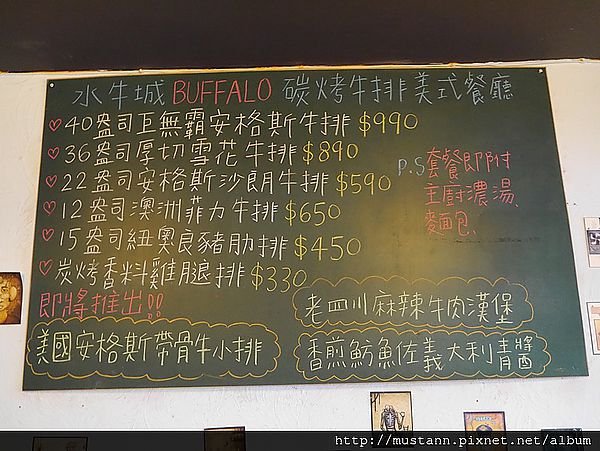 水牛城 BUFFALO 碳烤牛排美式餐廳
♡40盎司巨無霸安格斯牛排 $990
♡36盎司厚切雪花牛排 $890
♡22盎司安格斯沙朗牛排 $590
♡12盎司澳洲菲力牛排 $650
♡15盎司紐奧良豬肋排 $450
♡碳烤香料雞腿排 $330
P.S 套餐即附
主廚濃湯、
麵包、
即將推出!!
老四川麻辣牛肉漢堡
美國安格斯帶骨牛小排
香煎魴魚佐義大利青醬
http://mustann.pixnet.net/album